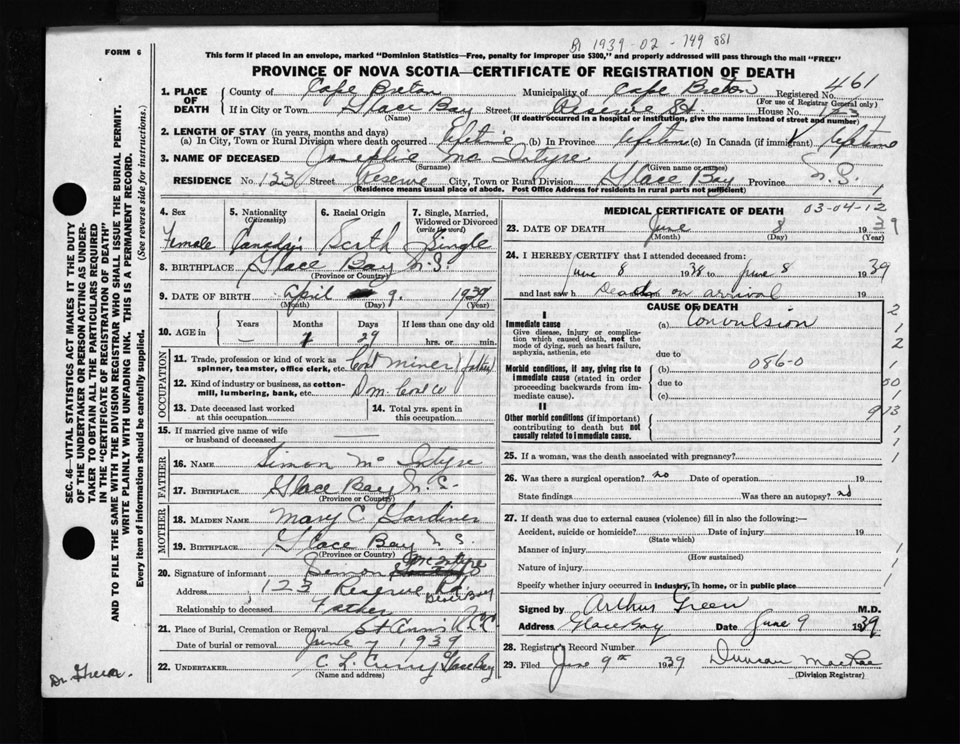 FORM 6
B 1939-02-749 881
This form if placed in an envelope, marked "Dominion Statistics—Free, penalty for improper use $300," and properly addressed will pass through the mail "FREE"
PROVINCE OF NOVA SCOTIA—CERTIFICATE OF REGISTRATION OF DEATH
1. PLACE OF DEATH
County of Cape Breton Municipality of Cape Breton Registered No. 461
(For use of Registrar General only)
If in City or Town Glace Bay Street Reserve St House No. 123
(Name) (If death occurred in a hospital or institution, give the name instead of street and number)
2. LENGTH OF STAY (in years, months and days)
(a) In City, Town or Rural Division where death occurred lifetime (b) In Province lifetime (c) In Canada (if immigrant) lifetime
3. NAME OF DECEASED Mc Intyre
(Surname) (Given name or names)
RESIDENCE No. 123 Street Reserve City, Town or Rural Division Glace Bay Province N.S.
(Residence means usual place of abode. Post Office Address for residents in rural parts not sufficient)
4. Sex Female
5. Nationality (Citizenship) Canadian
6. Racial Origin Scotch
7. Single, Married, Widowed or Divorced (write the word) Single
8. BIRTHPLACE Glace Bay N.S.
(Province or Country)
9. DATE OF BIRTH April 9. 1939
(Month) (Day) (Year)
10. AGE in Years Months Days If less than one day
— 1 29 hrs. or min.
OCCUPATION
11. Trade, profession or kind of work as spinner, teamster, office clerk, etc. Coal miner (father)
12. Kind of industry or business, as cotton-mill, lumbering, bank, etc. Dom. Coal Co
13. Date deceased last worked at this occupation
14. Total yrs. spent in this occupation
15. If married give name of wife or husband of deceased —
FATHER
16. NAME Simon Mc Intyre
17. BIRTHPLACE Glace Bay N.S.
(Province or Country)
MOTHER
18. MAIDEN NAME Mary C Gardiner
19. BIRTHPLACE Glace Bay N.S.
(Province or Country)
20. Signature of informant Simon McIntyre
Address 123 Reserve St Glace Bay
Relationship to deceased Father
21. Place of Burial, Cremation or Removal St Anns R.C.C.
Date of burial or removal June 7, 1939
22. UNDERTAKER C. L. Curry Glace Bay
(Name and address)
MEDICAL CERTIFICATE OF DEATH 03-04-12
23. DATE OF DEATH June 8 1939
(Month) (Day) (Year)
24. I HEREBY CERTIFY that I attended deceased from:
June 8 1938 to June 8 1939
and last saw h Dead on arrival 19
CAUSE OF DEATH
I
Immediate cause (a) Convulsion
Give disease, injury or complication which caused death, not the mode of dying, such as heart failure, asphyxia, asthenia, etc
due to
Morbid conditions, if any, giving rise to immediate cause (stated in order proceeding backwards from immediate cause).
(b) 086-0
due to
(c)
II
Other morbid conditions (if important) contributing to death but not causally related to immediate cause.
25. If a woman, was the death associated with pregnancy?
26. Was there a surgical operation? no Date of operation 19
State findings Was there an autopsy? no
27. If death was due to external causes (violence) fill in also the following:—
Accident, suicide or homicide? Date of injury 19
(State which)
Manner of injury
(How sustained)
Nature of injury
Specify whether injury occurred in industry, in home, or in public place
Signed by Arthur Green M.D.
Address Glace Bay Date June 9 1939
28. Registrar's Record Number
29. Filed June 9th 1939 Duncan MacRae
(Division Registrar)
SEC. 46—VITAL STATISTICS ACT MAKES IT THE DUTY
OF THE UNDERTAKER OR PERSON ACTING AS UNDER-
TAKER TO OBTAIN ALL THE PARTICULARS REQUIRED
IN THE "CERTIFICATE OF REGISTRATION OF DEATH"
AND TO FILE THE SAME WITH THE DIVISION REGISTRAR WHO SHALL ISSUE THE BURIAL PERMIT.
WRITE PLAINLY WITH UNFADING INK. THIS IS A PERMANENT RECORD.
Every item of information should be carefully supplied. (See reverse side for instructions.)
Dr. Green.